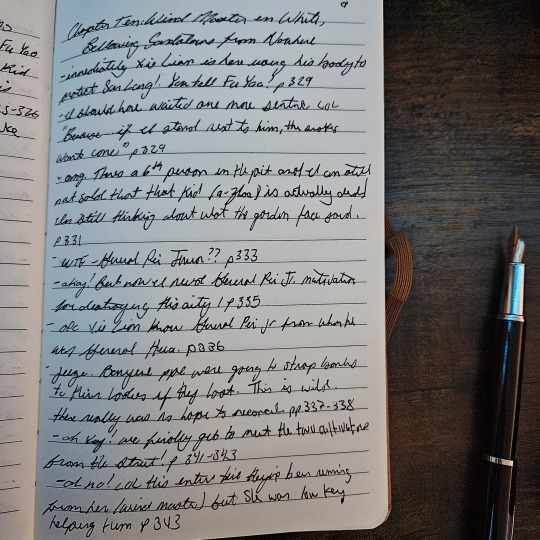 Fu Yao
Kid
is
5-326
Chapter Ten: Wind Master in White,
Bellowing Sandstorms from Nowhere
-immediately Xie Lian is here using his body to
protect San Lang! You tell Fu Yao! p329
-I should have waited one more sentence LOL
"Because if I stand next to him, the snakes
won't come" p329
-omg. There's a 6th person in the pit and I am still
not sold that that kid (a-Zhao) is actually dead
I'm still thinking about what the garden face said.
p331
- WTF - General Pei Junior?? p333
-okay! But now I need General Pei Jr. motivation
for destroying this city! p335
- ofc Xie Lian knew General Pei Jr from when he
was General Hua. p336
- jeeze. Banyue ppl were going to strap bombs
to their bodies if they lost. This is wild.
there really was no hope to reconcile pp 337-338
-oh yay! we finally get to meet the two cultivators
from the street! p 341-343
-oh no! all this entire time they've been running
from her (wind master) but she was low key
helping them p343